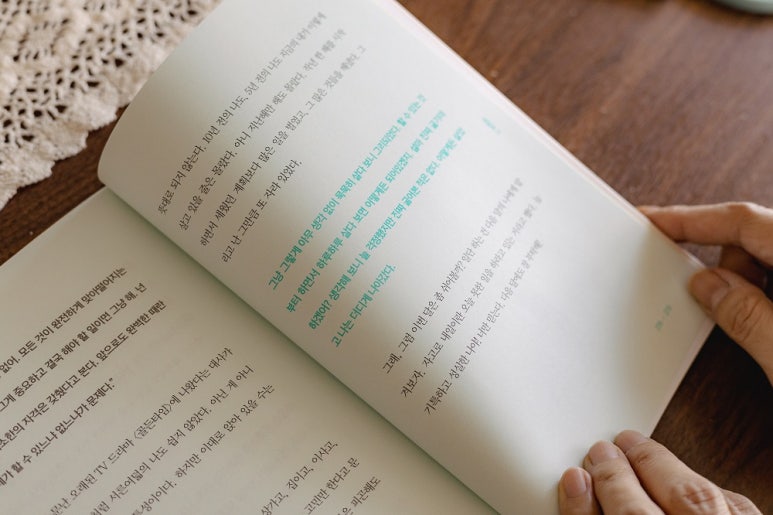 없어, 모든 것이 완전하게 맞아떨어지는
그게 중요하고 결국 해야 할 일이면 그냥 해, 넌
소한의 자격은 갖췄다고 본다. 앞으로도 완벽한 때란
네가 할 수 있느냐 없느냐가 문제다."
문난 오래된 TV 드라마 〈골든타임〉에 나왔다는 대사가
처럼 서른여덟의 나도 쉽지 않았다. 아닌 게 아니
특성이이다. 하지만 이대로 앉아 있을 수는
상가고, 집이고, 이사고,
고민만 한다고 문
의 피곤해도
뜻대로 되지 않는다. 10년 전의 나도, 5년 전의 나도 지금의 내가 이렇게
살고 있을 줄은 몰랐다. 아니 지난해만 해도 몰랐다. 작년 한 해를 시작
하면서 세웠던 계획보다 많은 일을 벌였고, 그 많은 것들을 해냈다. 그
리고 난 그만큼 또 자라 있었다.
그냥 그렇게 아무 생각 없이 묵묵히 살다 보니 그리되었다. 할 수 있는 것
부터 하면서 하루하루 살다 보면 어떻게든 되어있겠지. 설마 진짜 굶기야
하겠어? 생각해 보니 늘 걱정했지만 진짜 굶어본 적은 없다. 어떻게든 살았
고 나는 더디게 나아갔다.
그래, 그럼 이번 달은 좀 쉬어볼까? 일단 하는 건 다음 달의 나에게 맡
겨보자. 자고로 내일이란 오늘 못한 일을 하라고 있는 거라고 했다. 늘
기특하고 성실한 나야! 너만 믿는다. 다음 달에도 잘 부탁해!
28 - 29